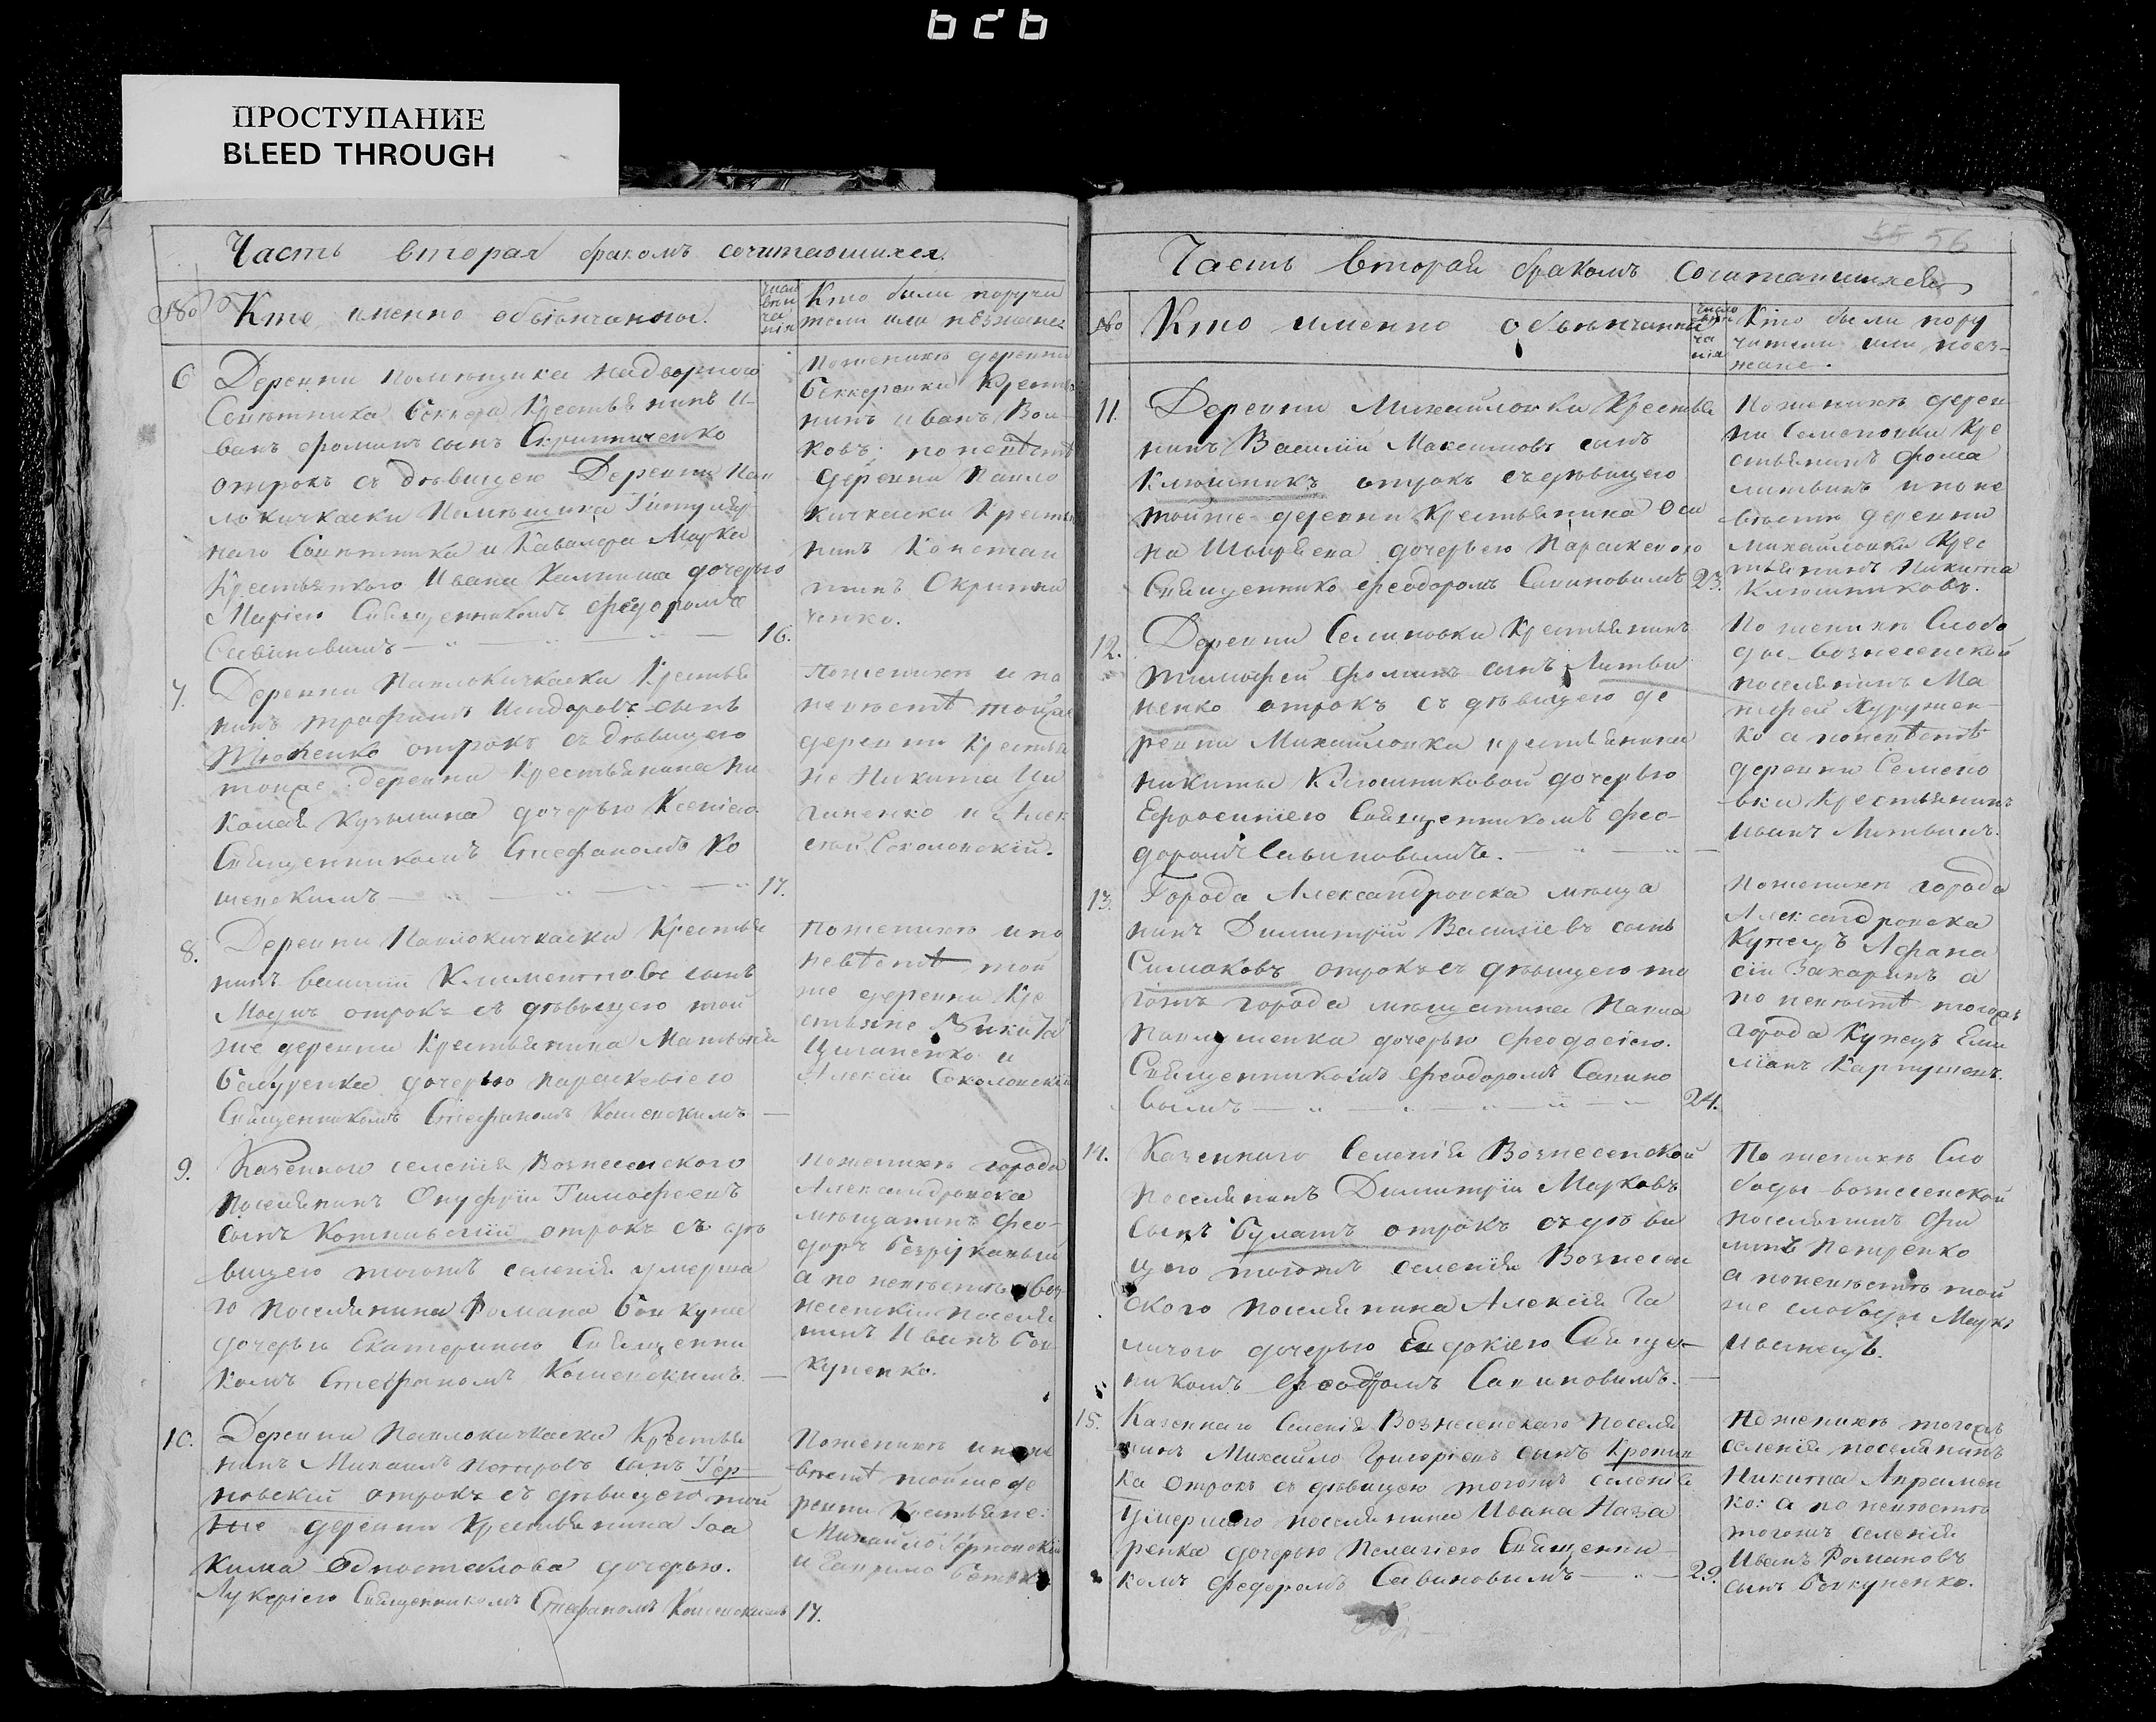 ПРОСТУПАНИЕ
BLEED THROUGH
Часть вторая бракомъ сочитавшихся.
№ Кто именно обвѣнчанны.
число
вѣн
ча
нія
Кто были поручи
тели или поѣзжане
6 Деревни помѣщика надворнаго
Совѣтника Беккера Крестьянинъ И-
ванъ Фоминъ сынъ Скрипниченко
отрокъ съ дѣвицею Деревни Пав
локичкаски Помѣщика Титуляр
наго Совѣтника и Кавалера Марка
Ивана дочерью
Маріею Священникомъ Феодоромъ
Савиновымъ 16.
По женихѣ деревни
Беккеровки Крестья
нинъ Иванъ Вол-
ковъ: по невѣстѣ
деревни Павло
кичкаски Крестья
нинъ Констан
тинъ Скрипни
ченко.
7. Деревни Павлокичкаски Крестья
нинъ Трофимъ Исидоровъ сынъ
отрокъ съ дѣвицею
тоиже деревни Крестьянина Ни
колая Кузьмина дочерью Ксеніею
Священникомъ Стефаномъ Ко
шевскимъ 17.
По женихѣ и по
невѣстѣ тоиже
деревни Крестья
не Никита Ци
ганенко и Алек
сѣй Соколовскій.
8. Деревни Павлокичкаски Крестья
нинъ Василій Климентовъ сынъ
отрокъ съ дѣвицею той
же деревни Крестьянина Матвѣя
дочерью Параскевіею
Священникомъ Стефаномъ Кошевскимъ
По женихѣ и по
невѣстѣ той
же деревни Кре
стьяне Никита
Циганенко и
Алексій Соколовскій
9. Казенного селенія Вознесенского
поселянинъ Онуфрій Тимофеевъ
сынъ отрокъ съ дѣ
вицею тогожъ селенія умерша
го поселянина Романа Бовкуна
дочерью Екатериною Священни
комъ Стефаномъ Кошевскимъ.
По женихѣ города
Александровска
мѣщанинъ Фео-
доръ Безрукавый
а по невѣстѣ Воз
несенскій поселя
нинъ Иванъ Бов
куненко.
10. Деревни Павлокичкаски Крестья
нинъ Михаилъ Петровъ сынъ Тер-
новскій отрокъ съ дѣвицею той
же деревни Крестьянина Іоа
кима дочерью.
Лукеріею Священникомъ Стефаномъ Кошевскимъ 17.
По женихѣ и по не
вѣстѣ тойже де
ревни Крестьяне:
Михайло Терновскій
и Гаврило
56
Часть вторая бракомъ Сочитавшихся
№ Кто именно обвѣнчанны
число
вѣн
ча
нія
Кто были пору
чители или поез-
жане.
11. Деревни Михайловки Крестья
нинъ Василій Максимовъ сынъ
Ключникъ отрокъ съ дѣвицею
тойже деревни Крестьянина Оси
па дочерью Параскевою
Священнико Феодоромъ Савиновымъ 23.
По женихѣ дерев
ни Семеновки Кре
стьянинъ Фома
Литвинъ и по не
вѣстѣ деревни
Михайловки Крес
тьянинъ Никита
Ключниковъ.
12. Деревни Семеновки Крестьянинъ
Тимофей Фоминъ сынъ Литви
ненко отрокъ съ дѣвицею де
ревни Михайловки крестьянина
Никиты Ключниковой дочерью
Ефросиніею Священникомъ Фео-
доромъ Савиновымъ.
По женихѣ Слобо
ды вознесенской
поселянинъ Ма

ко а по невѣстѣ
деревни Семено
вки Крестьянинъ
Иванъ Литвинъ.
13. Города Александровска мѣща
нинъ Димитрій Василіевъ сынъ
Симаковъ отрокъ съ дѣвицею то
гожъ города мѣщанина Павла
Павлушенка дочерью Феодосіею.
Священникомъ Феодоромъ Савино
вымъ 24.
По женихѣ города
Александровска
Купецъ Афана
сій Захаринъ а
по невѣстѣ тогожъ
города Купецъ Еми
ліанъ
14. Казеннаго Селенія Вознесенской
поселянинъ Димитрій Марковъ
сынъ Булатъ отрокъ съ дѣви
цею тогожъ селенія Вознесен
ского поселянина Алексія Га
личого дочерью Евдокіею Священ-
никомъ Феодоромъ Савиновымъ.
По женихѣ Сло
боды вознесенской
поселянинъ Фи
липъ Петренко
а по невѣстѣ той
же слободы Марко
15. Казеннаго Селенія Вознесенскаго Поселя
нинъ Михайло Григоріевъ сынъ Кропив
ка отрокъ съ дѣвицею тогожъ селенія
умершаго поселянина Ивана Наза
ренка дочерью Пелагіею Священни
комъ Федоромъ Савиновымъ 29.
По женихѣ тогожъ
селенія поселянинъ
Никита Авраمен
ко: а по невѣстѣ
тогожъ селенія
Иванъ Романовъ
сынъ Бовкуненко.